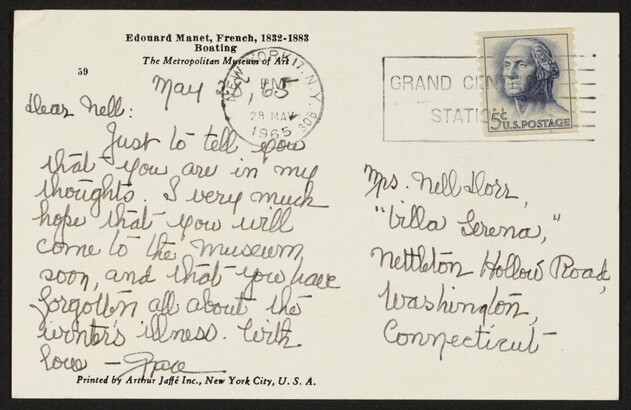 Edouard Manet, French, 1832-1883
Boating
The Metropolitan Museum of Art
59
May 28, '65
Dear Nell:
Just to tell you
that you are in my
thoughts. I very much
hope that you will
come to the Museum
soon, and that you have
forgotten all about the
winter's illness. With
love — Grace
Printed by Arthur Jaffé Inc., New York City, U. S. A.
NEW YORK 17, N.Y.
PM
28 MAY
1965
GRAND CEN
STATI
5¢ U.S. POSTAGE
Mrs. Nell Dorr,
"Villa Serena,"
Nettleton Hollow Road,
Washington,
Connecticut